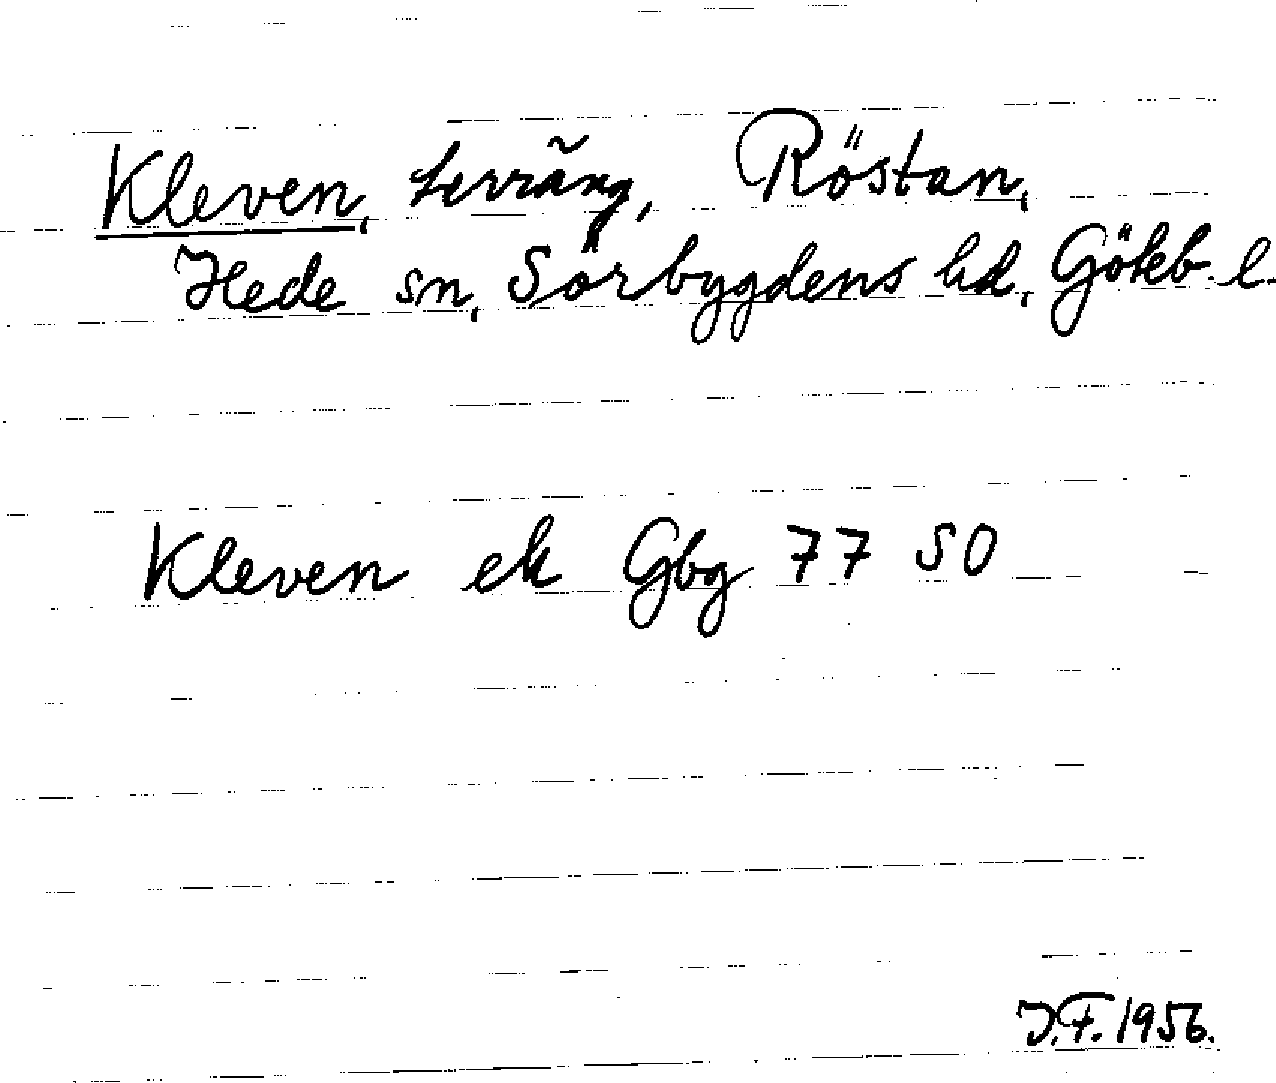 Kleven, terräng, Röstan,
Hede sn, Sörbygdens hd, Göteb. l.
Kleven ek Gbg 77 SO
J.F. 1956.